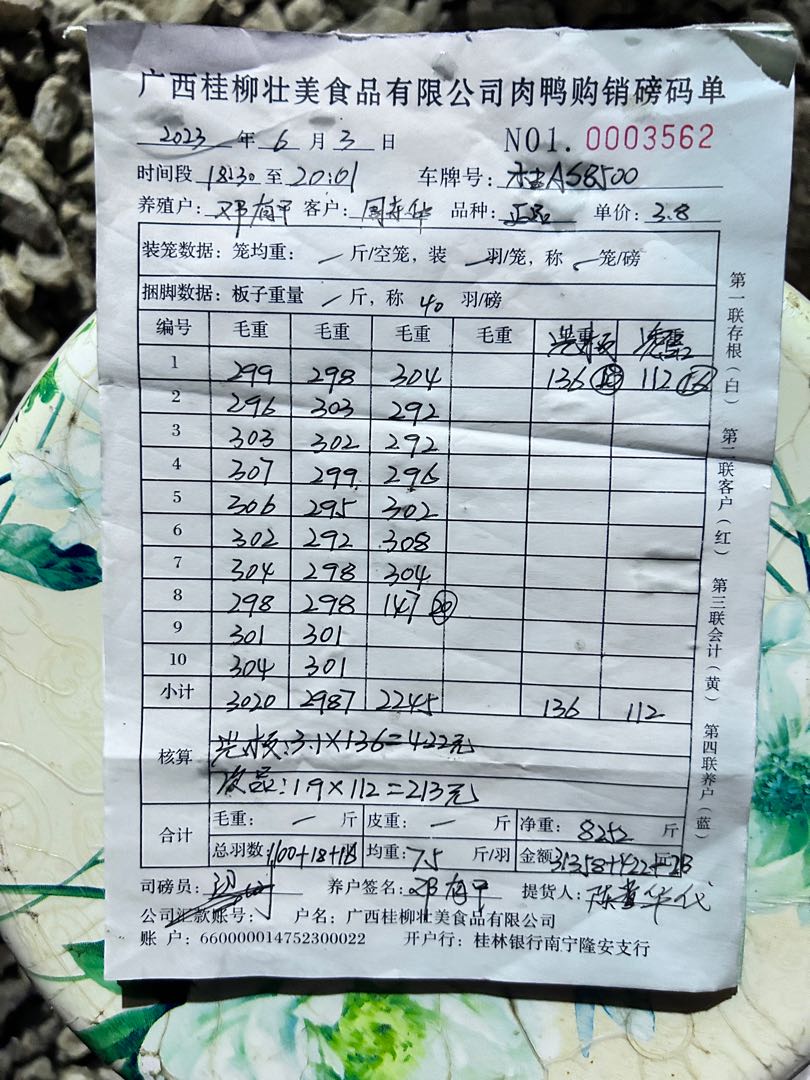 广西桂柳壮美食品有限公司肉鸭购销磅码单
2023 年 6 月 3 日 NO1. 0003562
时间段 18:30 至 20:01 车牌号: 桂AS8500
养殖户: 邓有甲 客户: 华 品种: 正品 单价: 3.8
装笼数据: 笼均重: 斤/空笼, 装 羽/笼, 称 笼/磅
捆脚数据: 板子重量 斤, 称 40 羽/磅
编号 毛重 毛重 毛重 毛重
1 299 298 304 136 18 112
2 296 303 292
3 303 302 292
4 307 299 296
5 306 295 302
6 302 292 308
7 304 298 304
8 298 298 147 20
9 301 301
10 304 301
小计 3020 2987 2245 136 112
核算 :3.1×136=422元
:1.9×112=213元
合计 毛重: 斤 皮重: 斤 净重: 8252 斤
总羽数: 1100+18+ 均重: 7.5 斤/羽 金额 31358+422+213
司磅员: 养户签名: 邓有甲 提货人: 陈 华代
公司汇款账号: 户名: 广西桂柳壮美食品有限公司
账 户: 660000014752300022 开户行: 桂林银行南宁隆安支行
第一联存根(白) 第二联客户(红) 第三联会计(黄) 第四联养户(蓝)